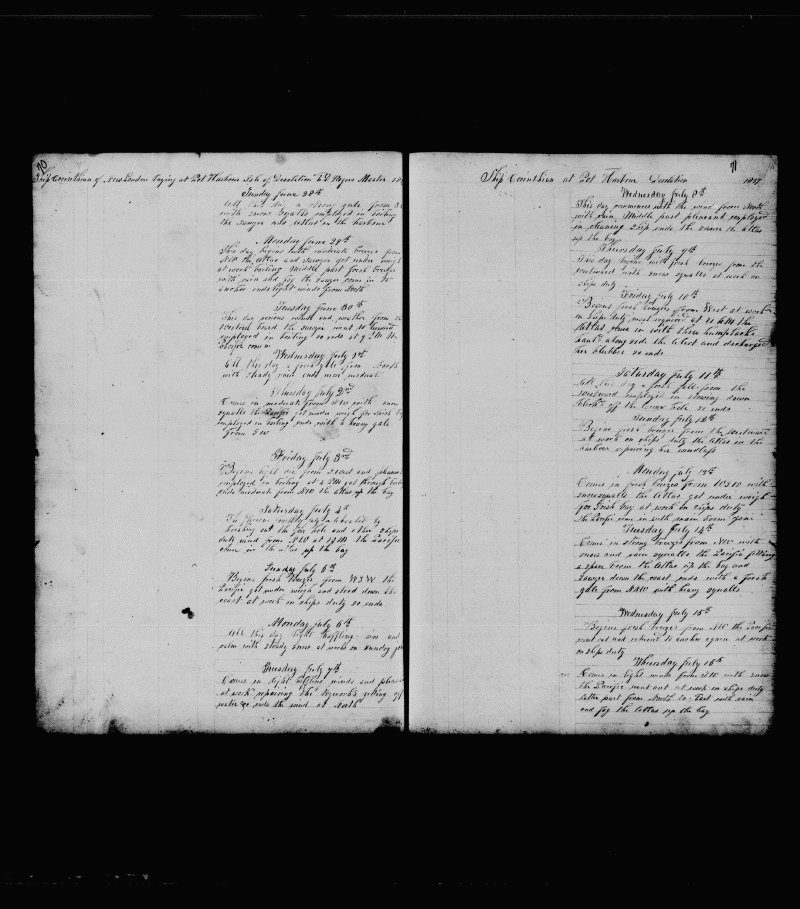 70
Ship Corinthian of New London Laying at Pot Harbour Isle of Desolation Rogers Master
Sunday June 28th
All this day a strong gale from
with snow squalls employed in boiling
the in the harbour
Monday June 29th
This day begins with moderate breezes from
NW the Atlas and got under weigh
at work boiling Middle part fresh breezes
with rain and fog the came in to
anchor ends light winds from North
Tuesday June 30th
This day winds and weather from
Western board the went to
employed in boiling so ends at 9 PM the
Pacific came in
Wednesday July 1st
All this day a fresh gale from North
with steady rain ends more moderate
Thursday July 2nd
Comes in moderate from NW with snow
squalls the Pacific got under weigh for Irish bay
employed in boiling ends with a heavy gale
from SW
Friday July 3rd
Begins light airs from and pleasant
employed in boiling at 2 PM got through
ends moderate from NW the Atlas up the bay
Saturday July 4th
celebrated by
out the fore hole and other ships
duty wind from NW at the Pacific
came in the Atlas up the bay
Sunday July 5th
Begins fresh breezes from WSW the
Pacific got under weigh and stood down the
coast at work on ships duty so ends
Monday July 6th
All this day light baffling airs and
calm with steady snow at work on sundry
Tuesday July 7th
Comes in light baffling winds and
at work repairing the getting off
water &c ends the wind at North
71
Ship Corinthian at Pot Harbour Desolation 1857
Wednesday July 8th
This day commences with the wind from North
with rain Middle part pleasant employed
in cleaning ship ends the same the Atlas
up the bay
Thursday July 9th
This day begins with fresh breezes from the
westward with snow squalls at work on
ships duty
Friday July 10th
Begins fresh breezes from West at work
in ships duty most at 11 AM the
Atlas came in with three humpbacks
along side the and discharged
her blubber so ends
Saturday July 11th
All this day a fresh gale from the
westward employed in stowing down
off the lower hole so ends
Sunday July 12th
Begins fresh breezes from the westward
at work on ships duty the Atlas in the
harbour repairing her windlass
Monday July 13th
Comes in fresh breezes from WSW with
snow squalls the Atlas got under weigh
for Irish bay at work on ships duty
the Pacific came in with main boom gone
Tuesday July 14th
Comes in strong breezes from NW with
snow and rain squalls the Pacific fitting
a spare boom the Atlas up the bay and
down the coast ends with a fresh
gale from NNW with heavy squalls
Wednesday July 15th
Begins fresh breezes from NW the Pacific
went out and returned to anchor again at work
on ships duty
Thursday July 16th
Comes in light winds from NW with snow
the Pacific went out at work on ships duty
latter part from North to East with rain
and fog the Atlas up the bay